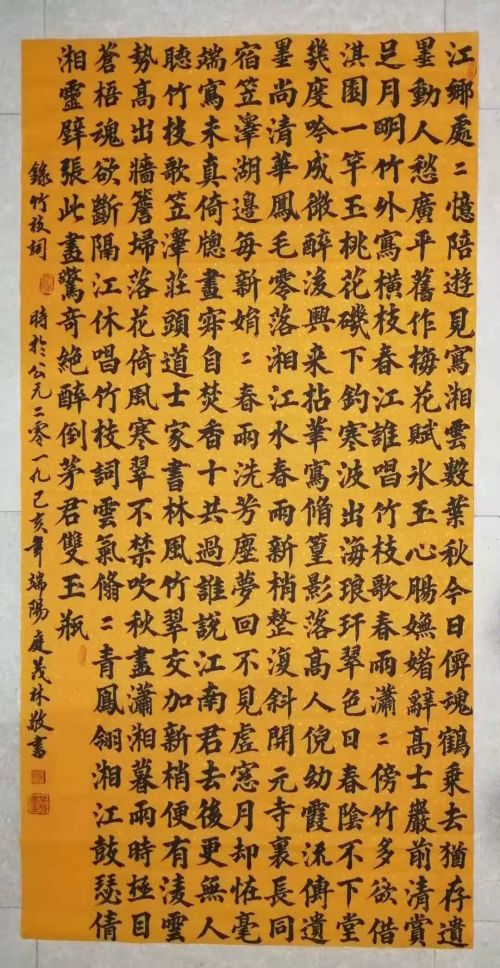 江鄉處二憶陪遊見寫湘雲數葉秋今日僊魂鶴乘去猶存遺
墨動人愁廣平舊作梅花賦氷玉心腸嫵媚辭高士巖前清賞
足月明竹外寫橫枝春江誰唱竹枝歌春雨瀟二傍竹多欲借
淇園一竿玉桃花磯下釣寒波出海琅玕翠色日春陰不下堂
幾度吟成微醉後興来拈筆寫脩篁影落高人倪幼霞流傳遺
墨尚清華鳳毛零落湘江水春雨新梢整復斜開元寺裏長同
宿笠澤湖邊每新娟二春雨洗芳塵夢回不見虛窓月却怪毫
端寫未真倚牕畫霽自焚香十共過誰說江南君去後更無人
聽竹枝歌笠澤莊頭道士家書林風竹翠交加新梢便有淩雲
勢高出牆簷埽落花倚風寒翠不禁吹秋盡瀟湘暮雨時極目
蒼梧魂欲斷隔江休唱竹枝詞雲氣翛二青鳳翎湘江鼓瑟倩
湘靈壁張此畫驚奇絕醉倒茅君雙玉瓶
錄竹枝詞 時於公元二零一九己亥年端陽庭茂林敬書